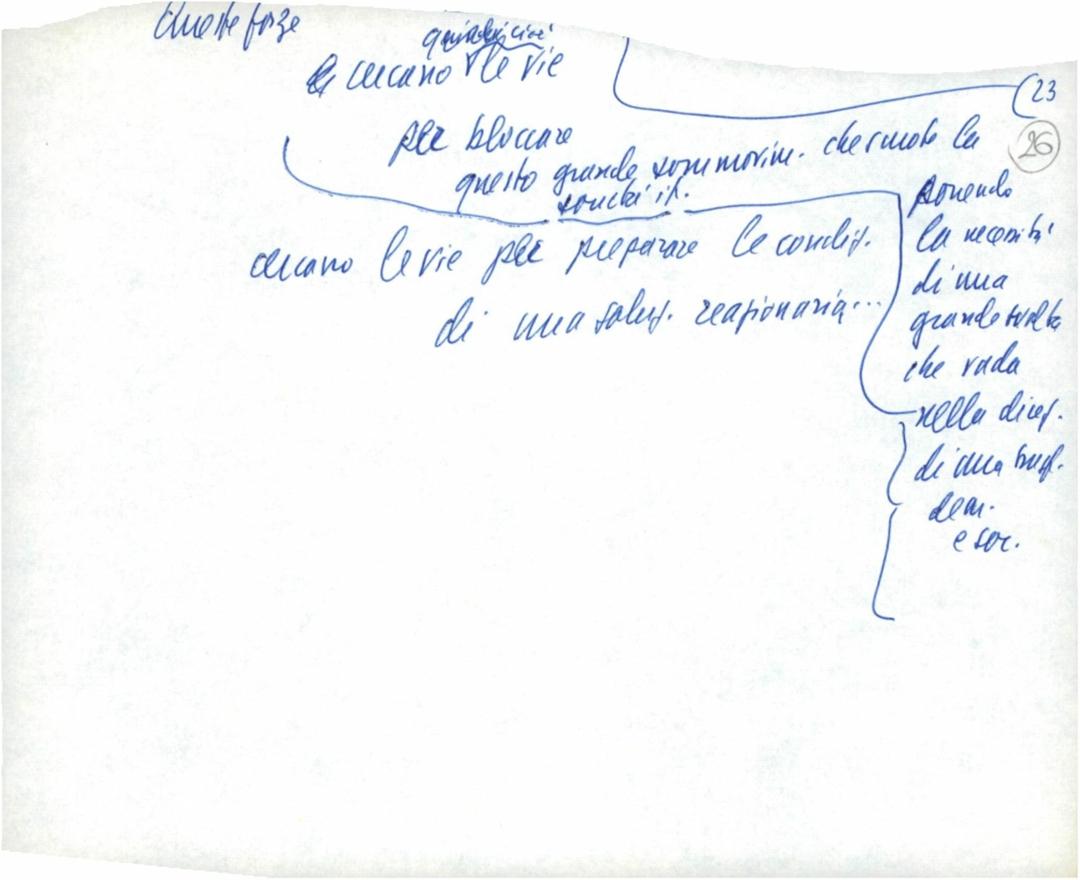 Queste forze
cercano le vie
23
26
per bloccare
questo grande sommovim. che scuote la
società it.
cercano le vie per preparare le condiz.
di una soluz. reazionaria...
ponendo
la necessità
di una
grande svolta
che vada
nella direz.
di una trasf.
dem.
e soc.